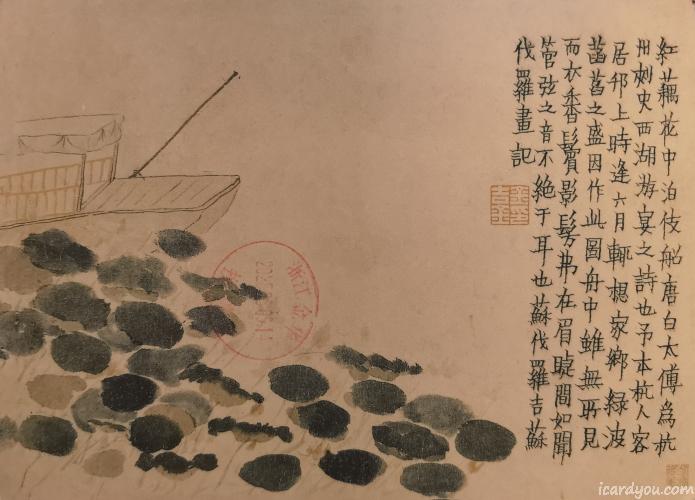 紅藕花中泊伎船唐白太傅為杭
州刺史西湖游宴之詩也予本杭人客
居邗上時逢六月輒想家鄉綠波
菡萏之盛因作此圖舟中雖無所見
而衣香鬢影髣弗在眉睫間如聞
管弦之音不絕于耳也蘇伐羅吉蘇
伐羅畫記
浙江
icardyou.com